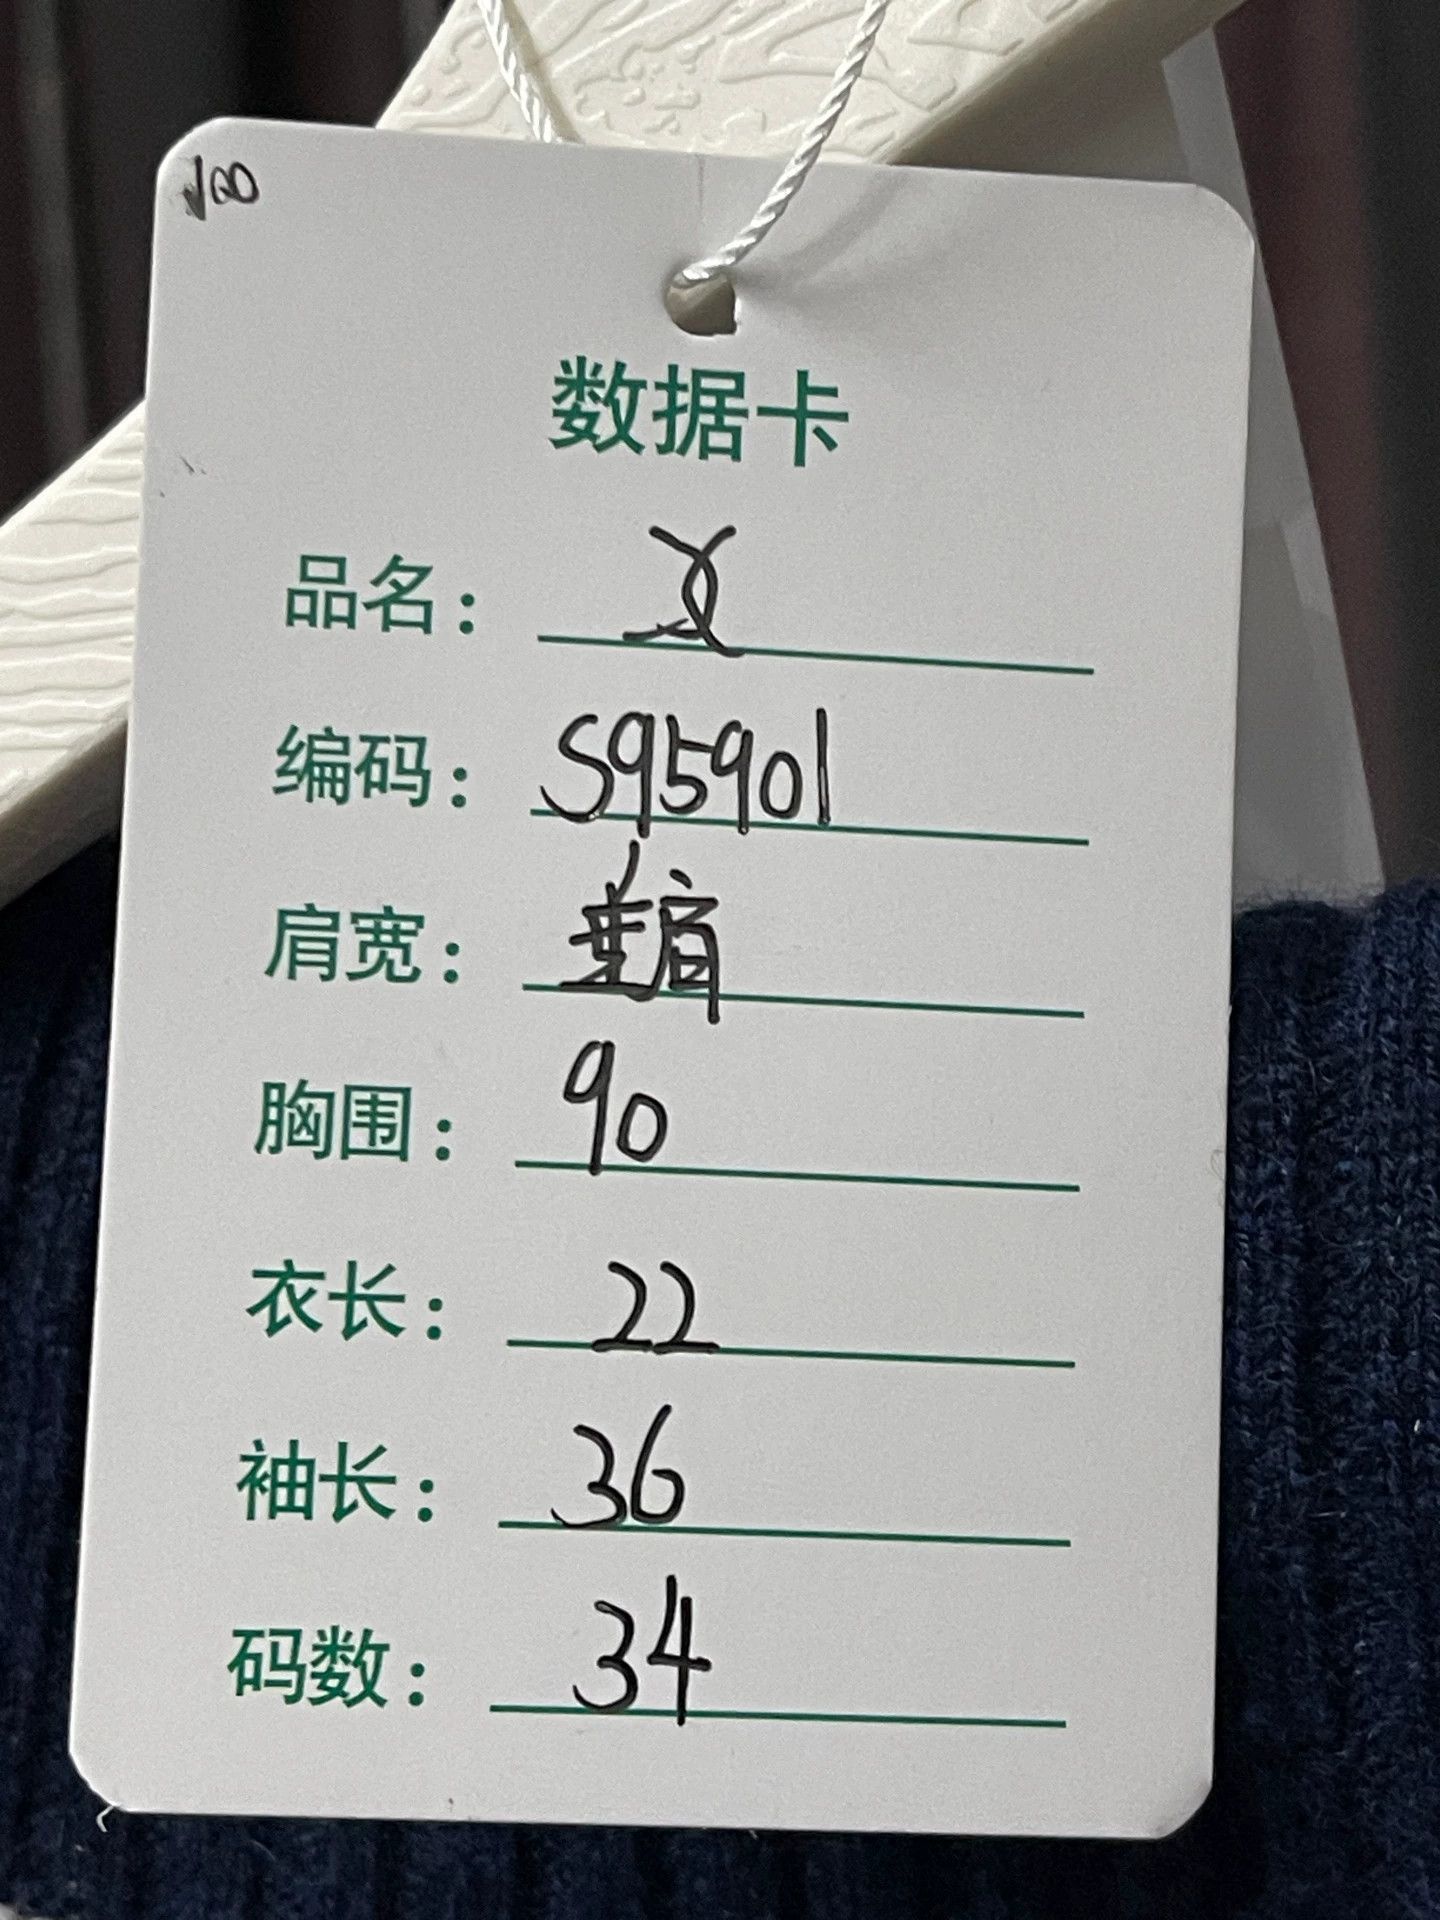 数据卡
品名：
编码：S95901
肩宽：垂肩
胸围：90
衣长：22
袖长：36
码数：34